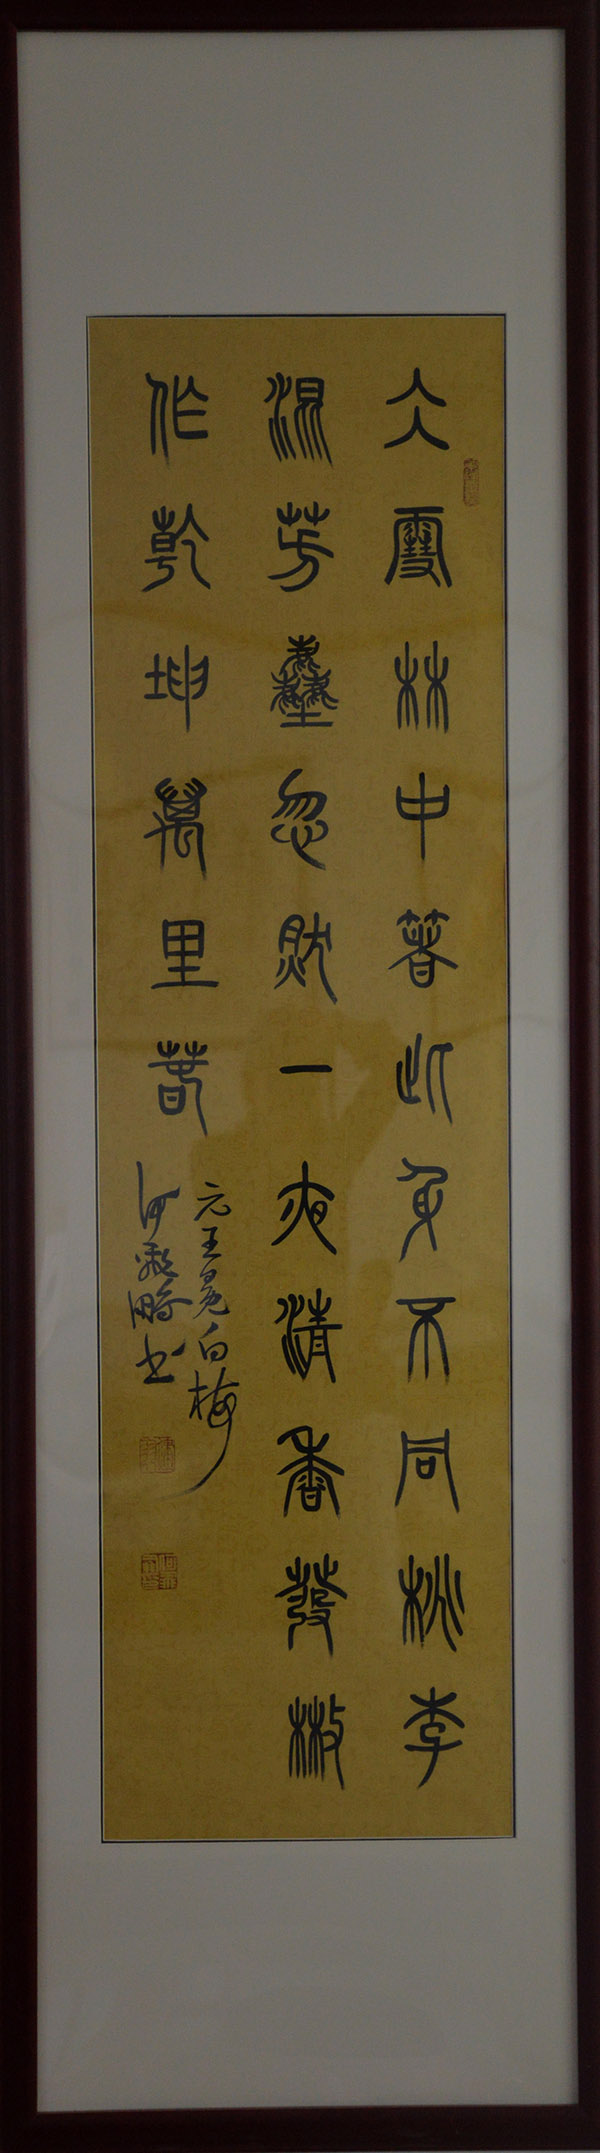 冰雪林中著此身不同桃李
混芳塵忽然一夜清香發散
作乾坤萬里春
元王冕白梅
何鵬书